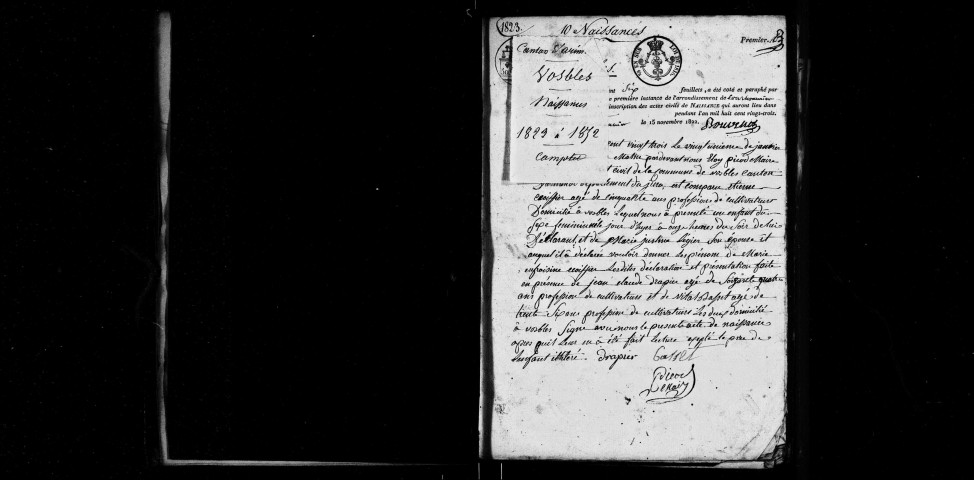 1823.
10 Naissances
Premier
Canton d'arin
Vosbles
Naissances
1823 à 1872
Comptes
Six feuillets, a été coté et paraphé par
première instance de l'arrondissement de
inscription des actes civils de NAISSANCE qui auront lieu dans
pendant l'an mil huit cent vingt-trois.
le 15 novembre 1822.
cent vingt trois le vingt unieme de janvier
Maitre pardevant nous Eloy pierre Maire
civil de la commune de vosbles canton
departement du jura, est comparu etienne
agé de cinquante ans profession de cultivateurs
Domicilié à vosbles Lequel nous à presenté un enfant du
sexe feminin née jour d'hyer à onze heures du soir de lui
Déclarant, et de Marie justine Légier Son épouse et
auquel il à déclaré vouloir donner Les prénoms de Marie
Lesdites déclaration et présentation faite
en présence de jean claude drapier agé de Soixante quatre
ans profession de cultivateurs et de vital Basset agé de
trente Six ans profession de cultivateurs Les deux domicilié
à vosbles Signé avec nous le present acte de naissance
apres quil Leur en à été fait lecture excepté le pere de
Lenfant illitéré. drapier Basset